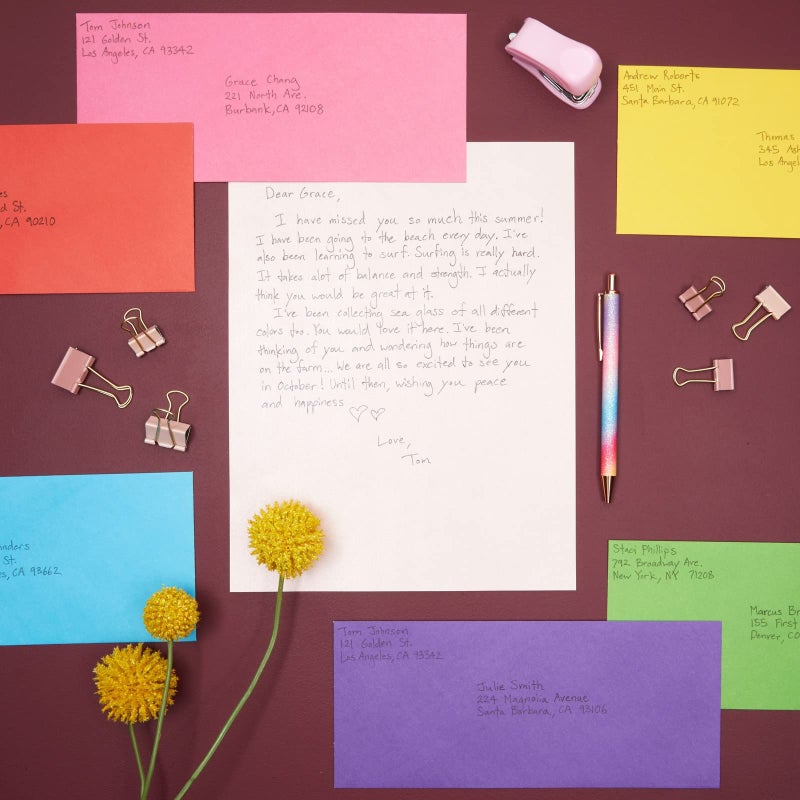 Tom Johnson
121 Golden St.
Los Angeles, CA 93342
Grace Chang
221 North Ave.
Burbank, CA 92108
Andrew Roberts
451 Main St.
Santa Barbara, CA 91072
Thomas
345 Ash
Los Angel
es
d St.
, CA 90210
Dear Grace,
I have missed you so much this summer!
I have been going to the beach every day. I've
also been learning to surf. Surfing is really hard.
It takes alot of balance and strength. I actually
think you would be great at it.
I've been collecting sea glass of all different
colors too. You would love it here. I've been
thinking of you and wondering how things are
on the farm... We are all so excited to see you
in October! Until then, wishing you peace
and happiness
Love,
Tom
nders
St.
es, CA 93662
Staci Phillips
792 Broadway Ave.
New York, NY 71208
Marcus Br
155 First
Denver, CO
Tom Johnson
121 Golden St.
Los Angeles, CA 93342
Julie Smith
224 Magnolia Avenue
Santa Barbara, CA 93106